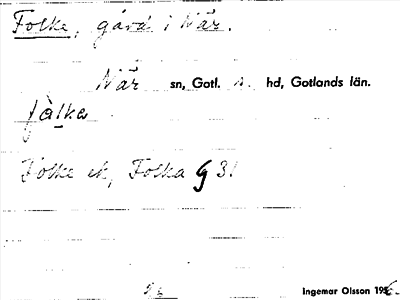 Folke, gård i När.
När sn, Gotl. s. hd, Gotlands län.
fàlka
Folke ek, Folka G 31
Ingemar Olsson 1956.